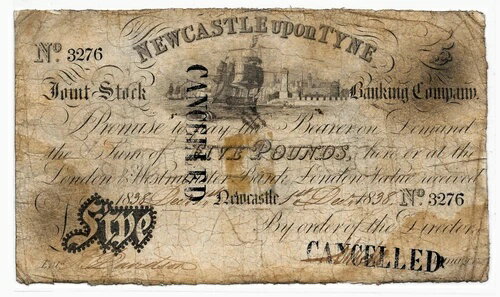 NEWCASTLE upon TYNE
No 3276
Joint-Stock Banking Company,
I Promise to pay the Bearer on Demand
the Sum of FIVE POUNDS, here or at the
London & Westminster Bank, London Value received
1838 Newcastle 1838 No 3276
£ Five By order of the Directors
CANCELLED
CANCELLED